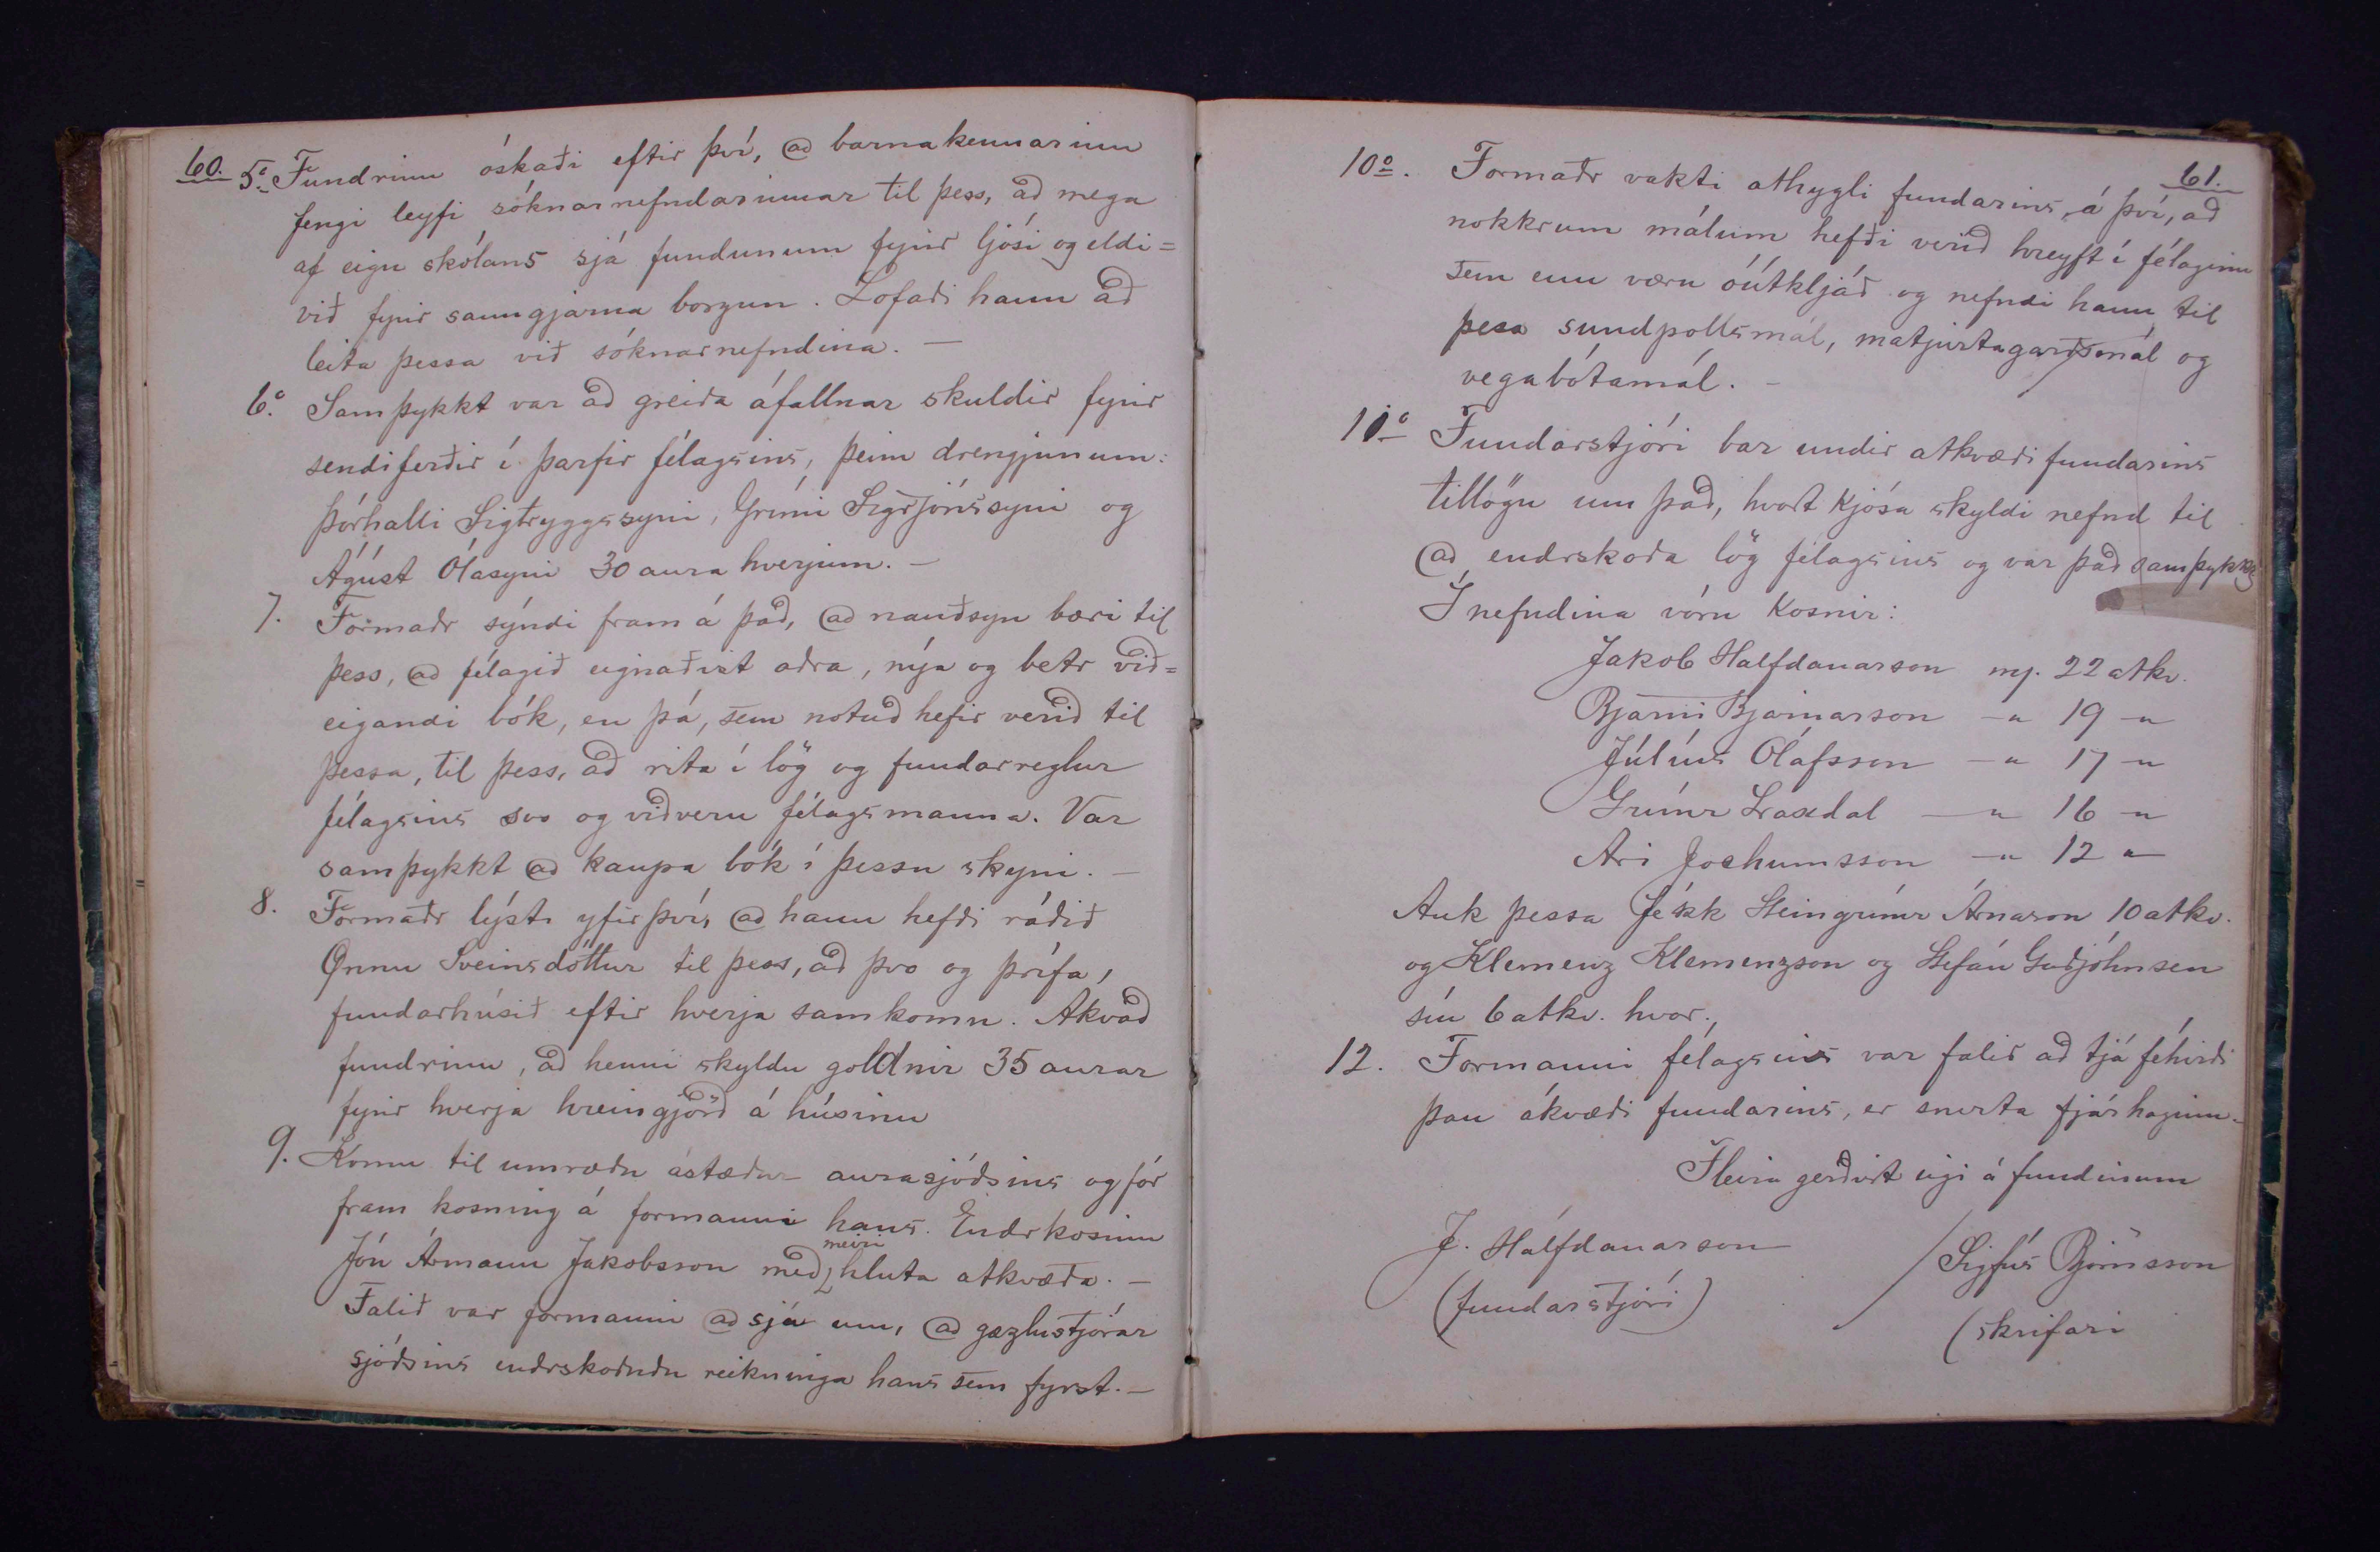 60.
5º. Fundrinn óskaði eftir því, að barnakennarinn
fengi leyfi sóknarnefndarinnar til þess, að mega
af eign skólans sjá fundunum fyrir ljósi og eldi=
við fyrir sanngjarna borgun. Lofaði hann að
leita þessa við sóknarnefndina. —
6º. Samþykkt var að greiða áfallnar skuldir fyrir
sendiferðir í þarfir félagsins, þeim drengjunum:
Þórhalli Sigtryggssyni, Grími Sigrjónssyni og
Ágúst Ólasyni 30 aura hverjum. —
7. Formaðr sýndi fram á það, að nauðsyn bæri til
þess, að félagið eignaðist aðra, nýja og betr við=
eigandi bók, en þá, sem notuð hefir verið til
þessa, til þess, að rita í lög og fundarreglur
félagsins svo og viðveru félagsmanna. Var
samþykkt að kaupa bók í þessu skyni. —
8. Formaðr lýsti yfir því, að hann hefði ráðið
Önnu Sveinsdóttur til þess, að þvo og þrífa,
fundarhúsið eftir hverja samkomu. Ákvað
fundrinn, að henni skyldu goldnir 35 aurar
fyrir hverja hreingjörð á húsinu
9. Komu til umræðu ástæður aurasjóðsins og fór
fram kosning á formanni hans. Endrkosinn
Jón Ármann Jakobsson með meiri hluta atkvæða. —
Falið var formanni að sjá um, að gæzlustjórar
sjóðsins endrskoðuðu reikninga hans sem fyrst. —
61.
10º. Formaðr vakti athygli fundarins, á því, að
nokkrum málum hefði verið hreyft í félaginu
sem enn væru óútkljáð og nefndi hann til
þess sundpollsmál, matjurtagarðsmál og
vegabótamál. —
11º Fundarstjóri bar undir atkvæði fundarins
tillögu um það, hvort kjósa skyldi nefnd til
að endrskoða lög félagsins og var það samþykkt
Í nefndina vóru kosnir:
Jakob Halfdanarson mf. 22 atkv.
Bjarni Bjarnarson —„ 19 —„
Júlíus Ólafsson —„ 17 —„
Grímr Laxdal —„ 16 —„
Ari Jochumsson —„ 12 „—
Auk þessa fékk Steingrímr Árnason 10 atkv.
og Klemenz Klemenzson og Stefán Guðjóhnsen
sín 6 atkv. hvor.
12. Formanni félagsins var falið að tjá féhirði
þau ákvæði fundarins, er snerta fjárhaginn.
Fleira gerðist eigi á fundinum
J. Hálfdanarson
(fundarstjóri)
/ Sigfús Bjórnsson
(skrifari